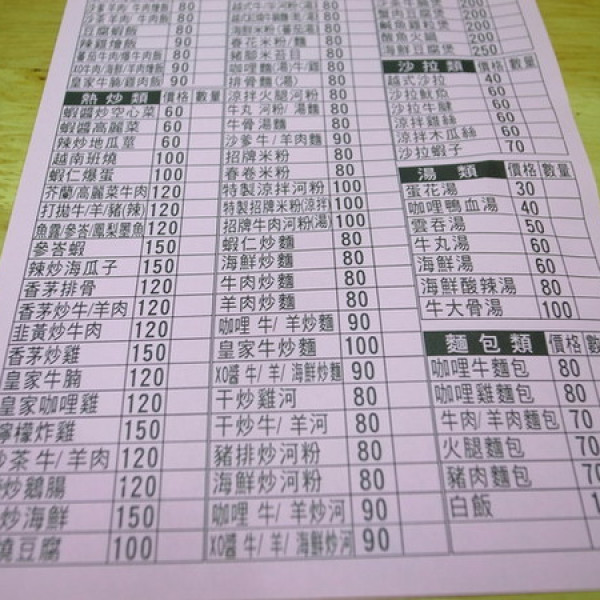 沙爹羊肉/牛肉飯 80
沙茶羊肉/牛肉飯 80
豆腐蝦飯 80
辣雞燴飯 90
蕃茄牛肉/爆牛肉飯 80
XO牛肉/海鮮/羊肉燴飯 90
皇家牛腩/雞肉飯 90
熱炒類 價格 數量
蝦醬炒空心菜 60
蝦醬高麗菜 60
辣炒地瓜葉 60
越南班燒 100
蝦仁爆蛋 100
芥蘭/高麗菜牛肉 120
打拋牛/羊/豬(辣) 120
魚露/參峇/鳳梨墨魚 120
參峇蝦 150
辣炒海瓜子 150
香茅排骨 120
香茅炒牛/羊肉 120
韭黃炒牛肉 120
香茅炒雞 150
皇家牛腩 120
皇家咖哩雞 120
檸檬炸雞 150
沙茶 牛/ 羊肉 120
炒鵝腸 120
炒海鮮 150
燒豆腐 100
80
80
80
春花米粉/麵 80
豬腳米苔目 80
咖哩麵(湯)牛/雞 80
排骨麵(湯) 80
涼拌火腿河粉 80
牛丸 河粉/ 湯麵 80
牛骨湯麵 80
沙爹 牛/羊肉麵 90
招牌米粉 80
春卷米粉 80
特製涼拌河粉 100
特製招牌米粉(涼拌) 100
招牌牛肉河粉(湯) 100
蝦仁炒麵 80
海鮮炒麵 80
牛肉炒麵 80
羊肉炒麵 80
咖哩 牛/ 羊炒麵 90
皇家牛炒麵 100
XO醬 牛/ 羊/ 海鮮炒麵 90
干炒雞河 80
干炒牛/ 羊河 80
豬排炒河粉 80
海鮮炒河粉 80
咖哩 牛/ 羊炒河 90
XO醬 牛/ 羊/ 海鮮炒河 90
200
200
鹹魚雞粒煲 200
酸魚火鍋 200
海鮮豆腐煲 250
沙拉類 價格 數量
越式沙拉 40
沙拉魷魚 60
沙拉牛腱 60
涼拌雞絲 60
涼拌木瓜絲 60
沙拉蝦子 70
湯類 價格 數量
蛋花湯 30
咖哩鴨血湯 40
雲吞湯 50
牛丸湯 60
海鮮湯 60
海鮮酸辣湯 80
牛大骨湯 100
麵包類 價格 數
咖哩牛麵包 80
咖哩雞麵包 80
牛肉/ 羊肉麵包 70
火腿麵包 70
豬肉麵包 70
白飯